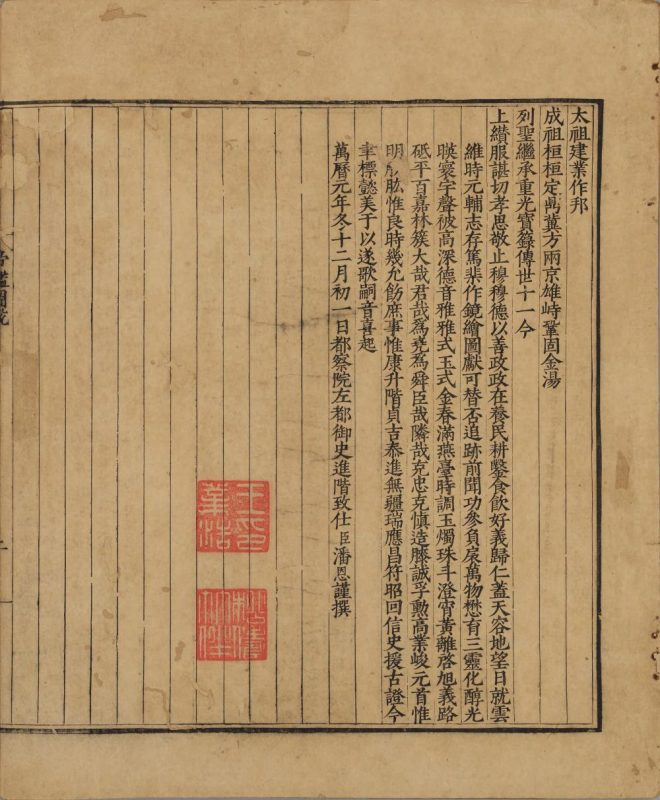 太祖建業作邦
成祖桓桓定鬲冀方兩京雄峙鞏固金湯
列聖繼承重光寶籙傳世十一今
上纘服諶切孝思敬止穆穆德以善政政在養民耕鑿食飲好義歸仁蓋天容地望日就雲
維時元輔志存篤棐作鏡繪圖獻可替否追跡前聞功參負扆萬物懋育三靈化醇光
暎寰宇聲被高深德音雅雅式玉式金春滿燕臺時調玉燭珠斗澄宵黃離啓旭義路
砥平百嘉林簇大哉君哉為堯為舜臣哉隣哉克忠克慎造膝誠孚勲高業峻元首惟
明 肱惟良時幾允飭庶事惟康升階貞吉泰進無疆瑞應昌符昭回信史援古證今
聿標懿美于以遂歌嗣音喜起
萬曆元年冬十二月初一日都察院左都御史進階致仕臣潘恩謹撰
王
業浩
鑑圖說